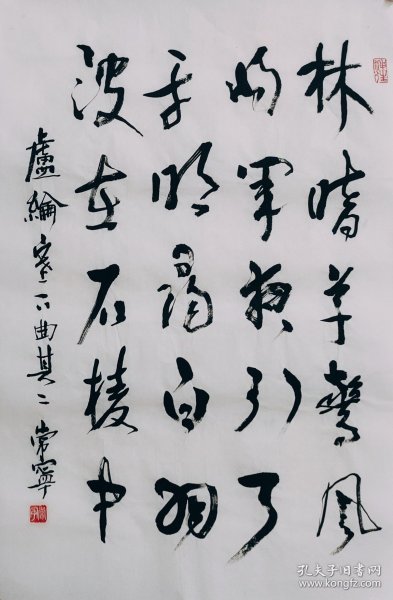 林暗草驚風
將軍夜引弓
平明尋白羽
沒在石棱中
盧綸塞下曲其二 常寧
孔夫子旧书网
www.kongfz.com